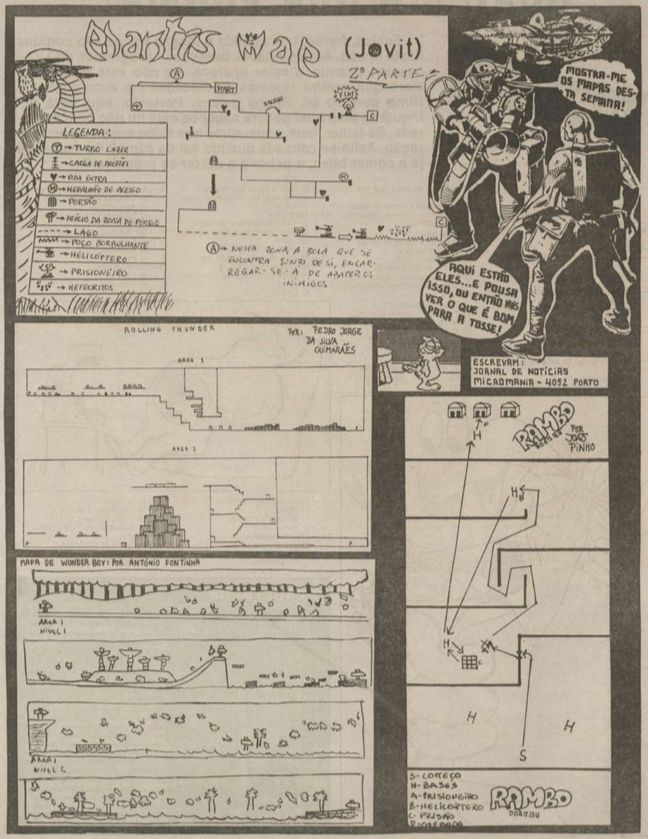 Mantis Map (Jovit)
2ª PARTE
MOSTRA-ME
OS MAPAS DES-
TA SEMANA!
A
START
SALTAR
FIM!
C
T
LEGENDA:
T → TURBO LAZER
→ CARGA DE PROTÕES
→ VIDA EXTRA
M → MEDALHÃO DE ACESSO
→ PORTÃO
→ INÍCIO DA ZONA DE PÓSTER
→ LAGO
→ POÇO BORBULHANTE
→ HELICÓPTERO
→ PRISIONEIRO
→ METEORITOS
M
C
A → NESTA ZONA A BOLA QUE SE
ENCONTRA JUNTO DE SI, ENCAR-
REGAR-SE-Á DE ABATER OS
INIMIGOS
AQUI ESTÃO
ELES...E POUSA
ISSO, OU ENTÃO VAIS
VER O QUE É BOM
PARA A TOSSE!
ROLLING THUNDER
POR: PEDRO JORGE
DA SILVA
GUIMARÃES
AREA 1
AREA 2
ESCREVAM:
JORNAL DE NOTÍCIAS
MICROMANIA - 4052 PORTO
RAMBO
POR
JOÃO
PINHO
P
H
H
B
H
A
C
H
H
S
S - COMEÇO
H - BASES
A - PRISIONEIRO
B - HELICOPTERO
C - PRISÃO
P - CHEGADA
RAMBO
MAPA DE WONDER BOY: POR ANTÓNIO FONTINHA
AREA 1
NIVEL 1
AREA 1
NIVEL 2